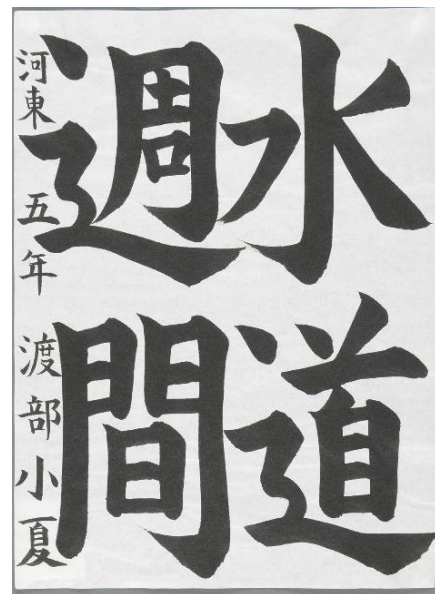 水道
週間
河東 五年 渡部小夏